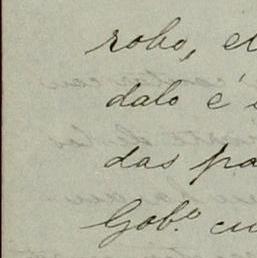 robo, e
dalo é
das pa
Gob.º cu